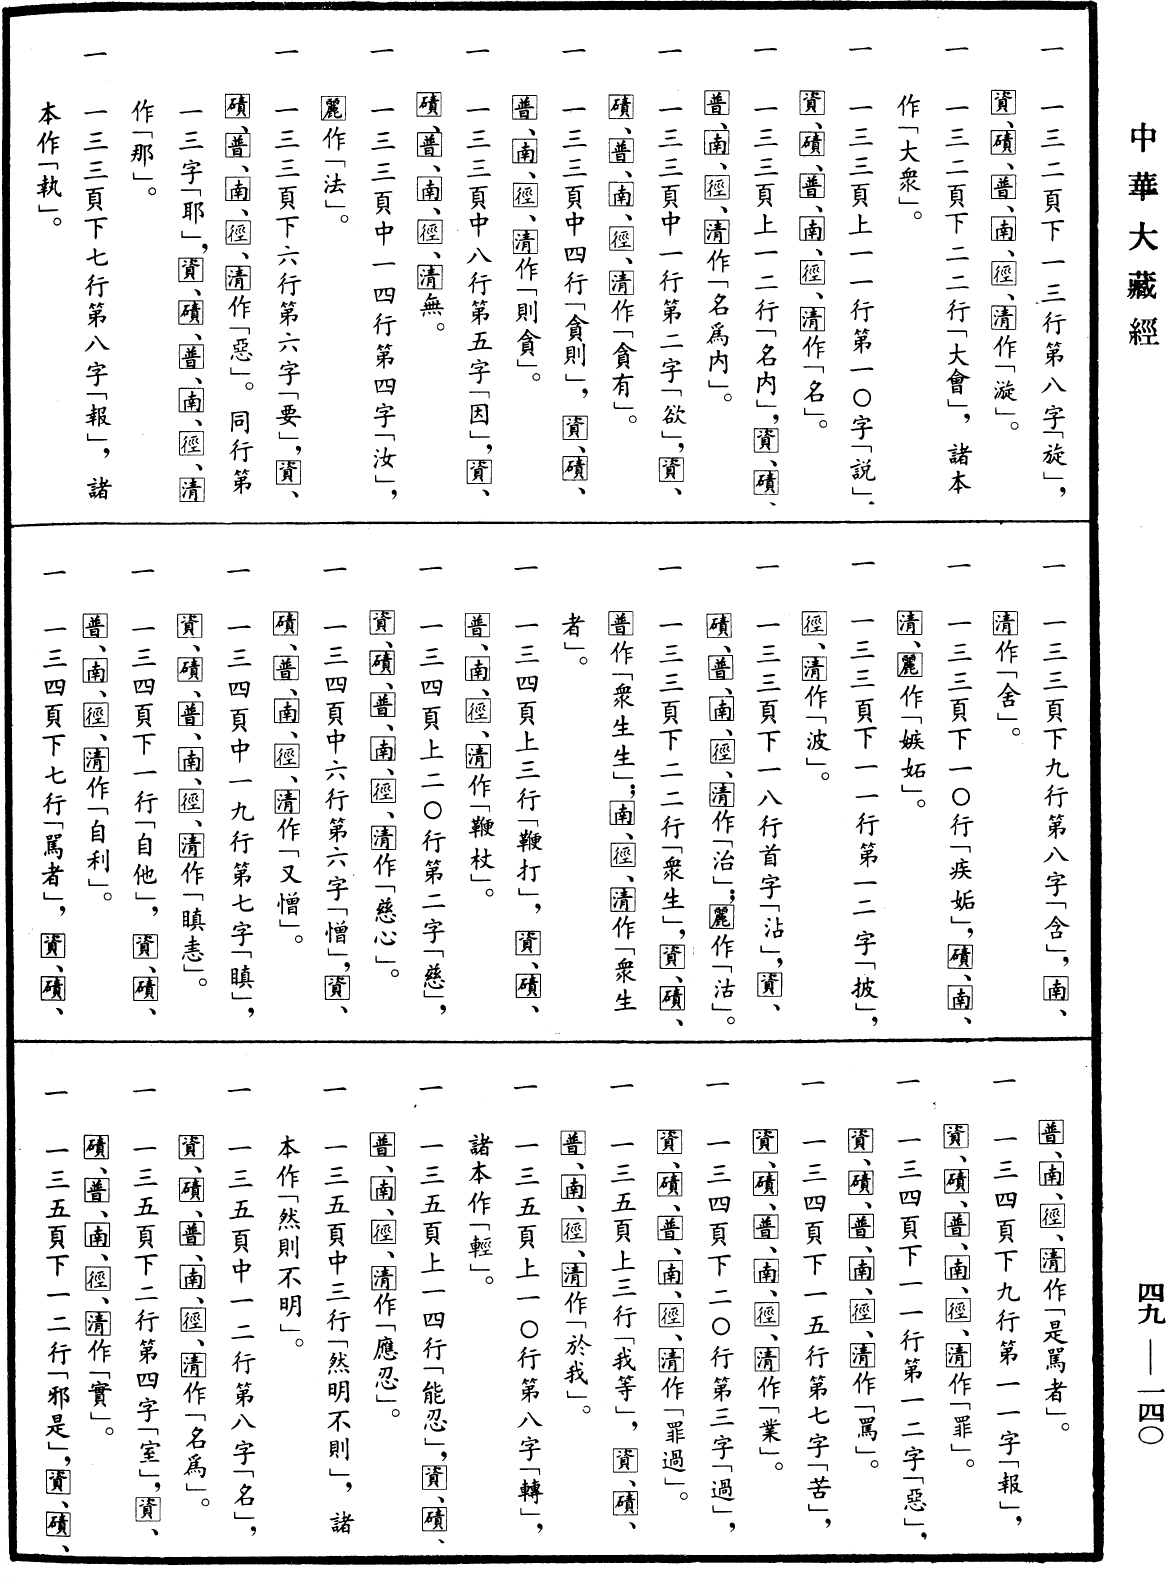 中華大藏經
四九—一四〇
一　一三二頁下一三行第八字「旋」，
資、磧、普、南、徑、清作「漩」。
一　一三二頁下二二行「大會」，諸本
作「大衆」。
一　一三三頁上一一行第一〇字「説」，
資、磧、普、南、徑、清作「名」。
一　一三三頁上一二行「名内」，資、磧、
普、南、徑、清作「名爲内」。
一　一三三頁中一行第二字「欲」，資、
磧、普、南、徑、清作「貪有」。
一　一三三頁中四行「貪則」，資、磧、
普、南、徑、清作「則貪」。
一　一三三頁中八行第五字「因」，資、
磧、普、南、徑、清無。
一　一三三頁中一四行第四字「汝」，
麗作「法」。
一　一三三頁下六行第六字「要」，資、
磧、普、南、徑、清作「惡」。同行第
一三字「耶」，資、磧、普、南、徑、清
作「那」。
一　一三三頁下七行第八字「報」，諸
本作「執」。
一　一三三頁下九行第八字「含」，南、
清作「舍」。
一　一三三頁下一〇行「疾姤」，磧、南、
清、麗作「嫉妬」。
一　一三三頁下一一行第一二字「披」，
徑、清作「波」。
一　一三三頁下一八行首字「沾」，資、
磧、普、南、徑、清作「治」；麗作「沽」。
一　一三三頁下二二行「衆生」，資、磧、
普作「衆生生」；南、徑、清作「衆生
者」。
一　一三四頁上三行「鞭打」，資、磧、
普、南、徑、清作「鞭杖」。
一　一三四頁上二〇行第二字「慈」，
資、磧、普、南、徑、清作「慈心」。
一　一三四頁中六行第六字「憎」，資、
磧、普、南、徑、清作「又憎」。
一　一三四頁中一九行第七字「瞋」，
資、磧、普、南、徑、清作「瞋恚」。
一　一三四頁下一行「自他」，資、磧、
普、南、徑、清作「自利」。
一　一三四頁下七行「罵者」，資、磧、
普、南、徑、清作「是罵者」。
一　一三四頁下九行第一一字「報」，
資、磧、普、南、徑、清作「罪」。
一　一三四頁下一一行第一二字「惡」，
資、磧、普、南、徑、清作「罵」。
一　一三四頁下一五行第七字「苦」，
資、磧、普、南、徑、清作「業」。
一　一三四頁下二〇行第三字「過」，
資、磧、普、南、徑、清作「罪過」。
一　一三五頁上三行「我等」，資、磧、
普、南、徑、清作「於我」。
一　一三五頁上一〇行第八字「轉」，
諸本作「輕」。
一　一三五頁上一四行「能忍」，資、磧、
普、南、徑、清作「應忍」。
一　一三五頁中三行「然明不則」，諸
本作「然則不明」。
一　一三五頁中一二行第八字「名」，
資、磧、普、南、徑、清作「名爲」。
一　一三五頁下二行第四字「室」，資、
磧、普、南、徑、清作「實」。
一　一三五頁下一二行「邪是」，資、磧、